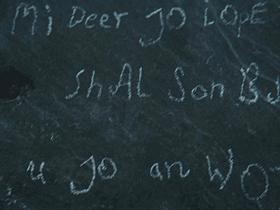 Mi Deer JO i OPE
ShAL Son B
u JO an